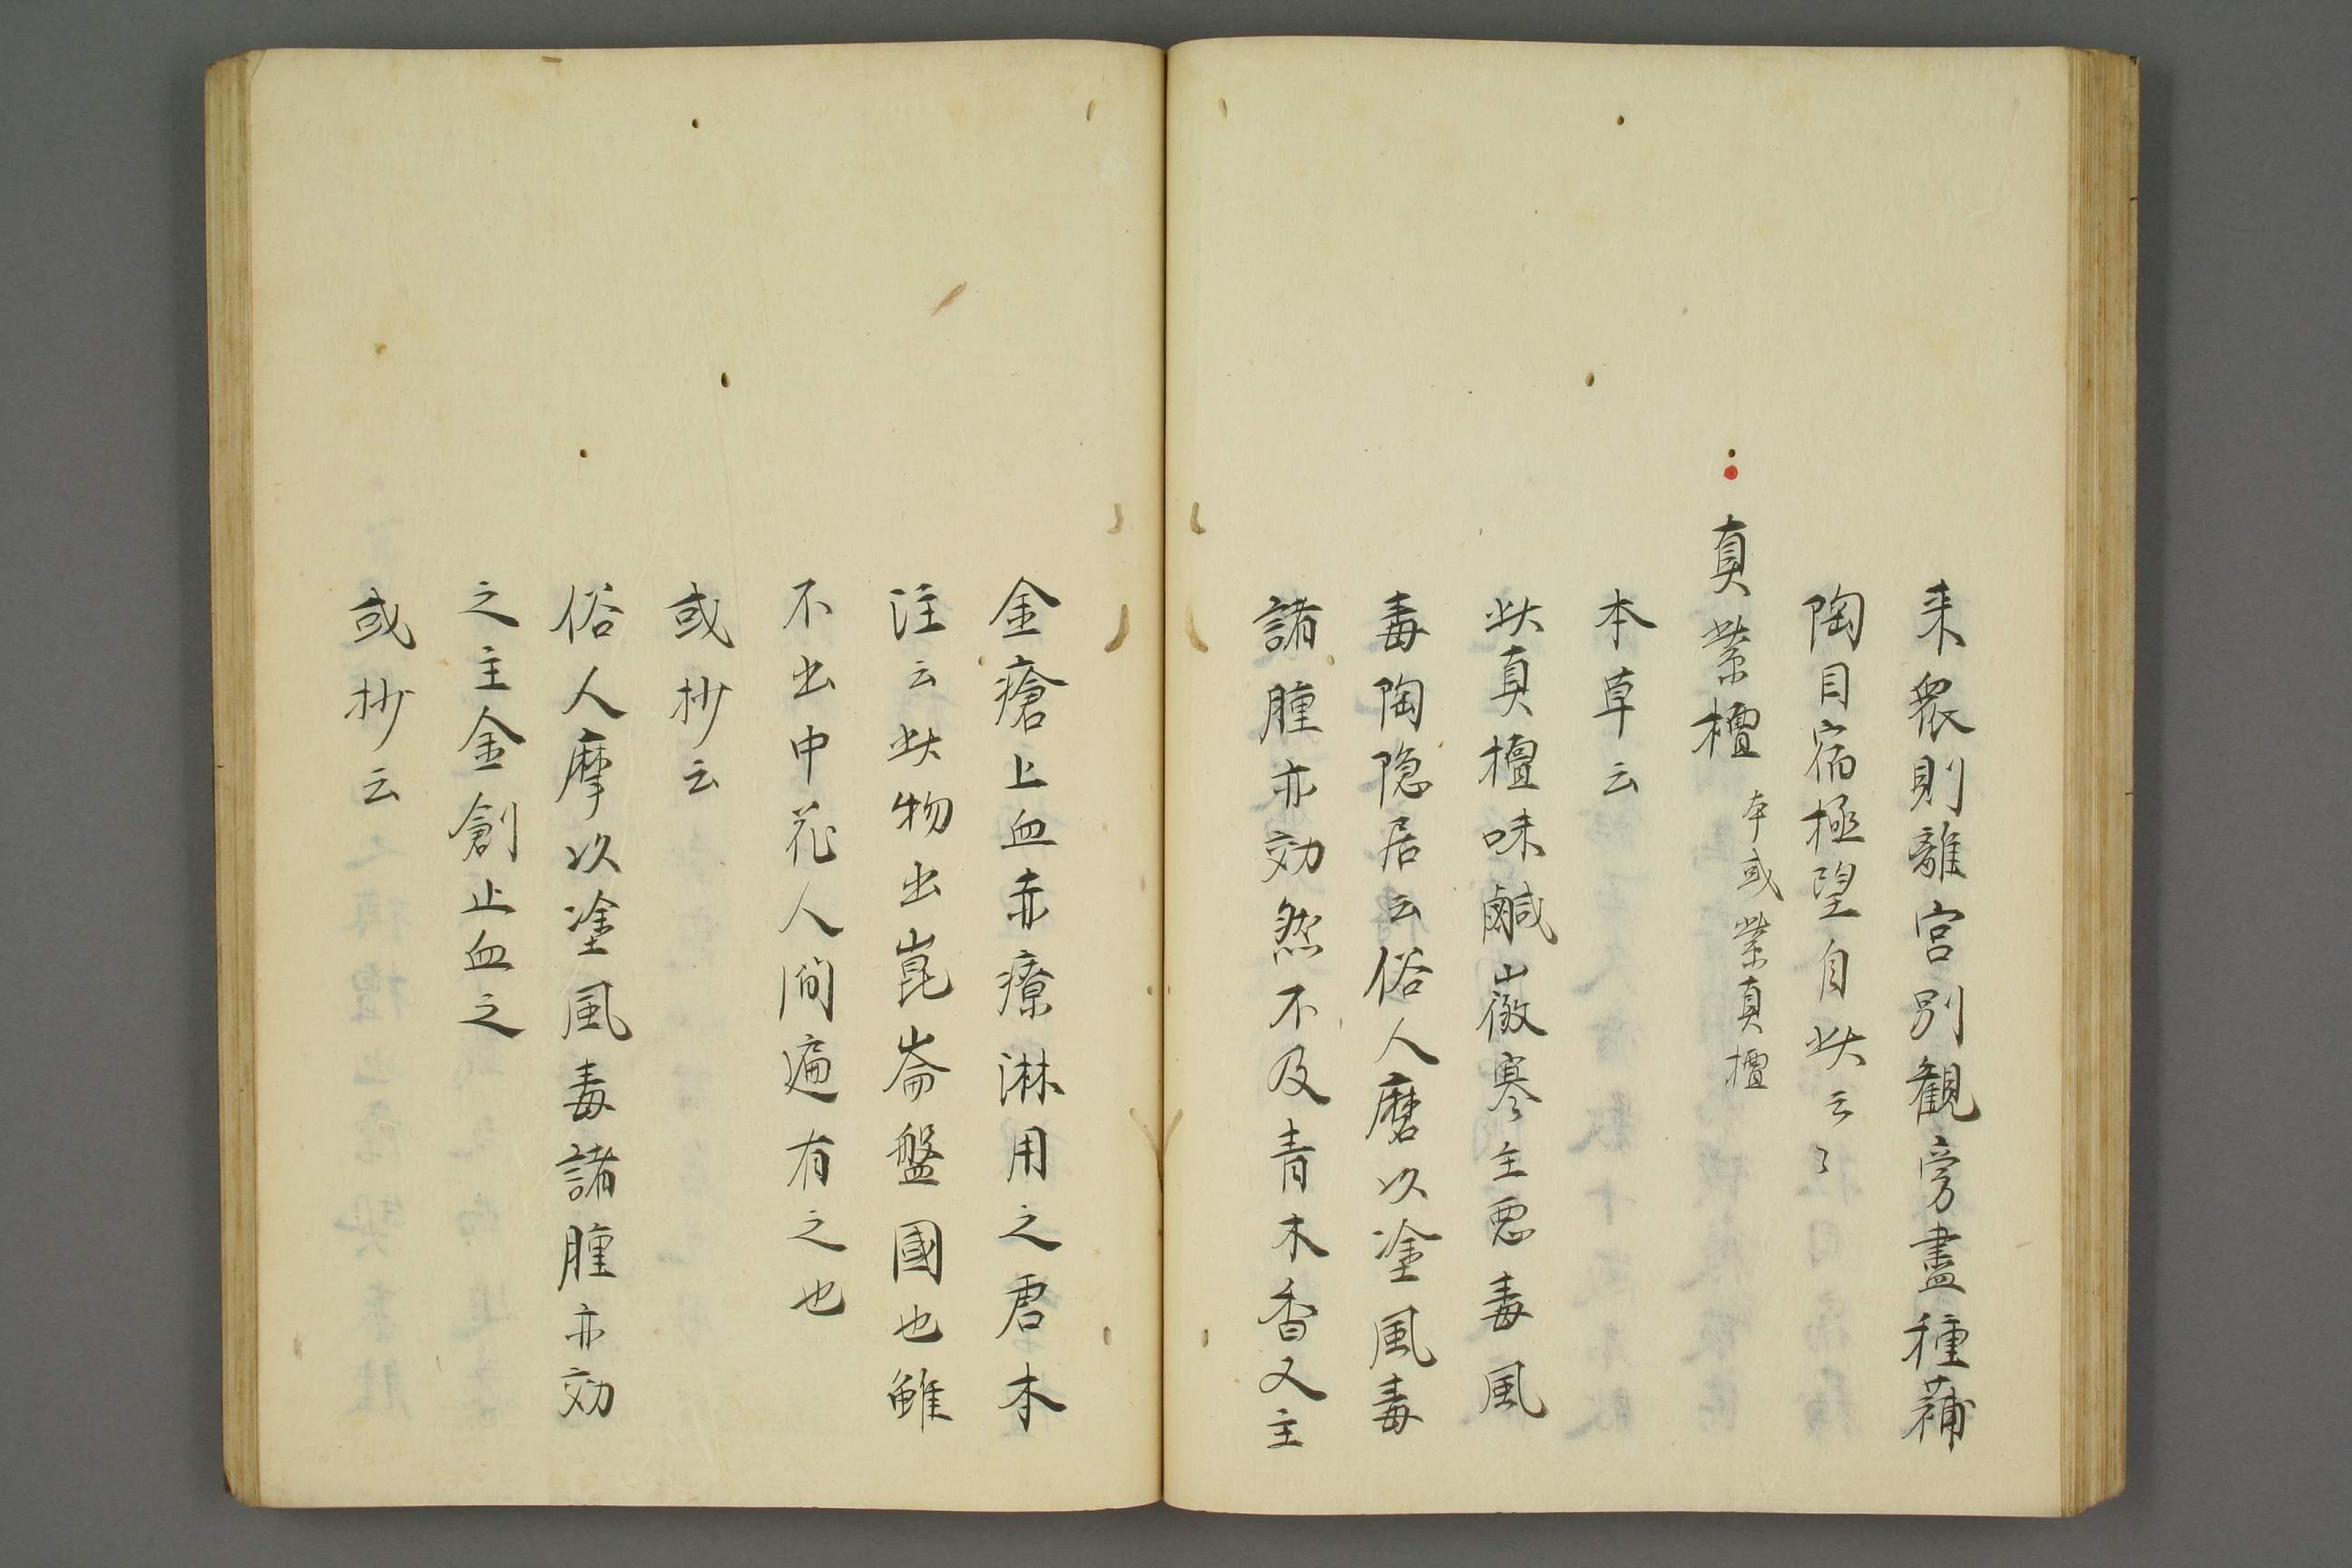 来衆則離宮別觀旁盡種蒱
陶目宿極望自此云〻
真紫檀 本或紫真檀
本草云
此真檀味鹹微寒主惡毒風
毒陶隠居云俗人磨以塗風毒
諸腫亦効然不及青木香又主
金瘡上血赤療淋用之君本
注云此物出崑崙盤國也雖
不出中花人間遍有之也
或抄云
俗人摩以塗風毒諸腫亦効
之主金創止血之
或抄云